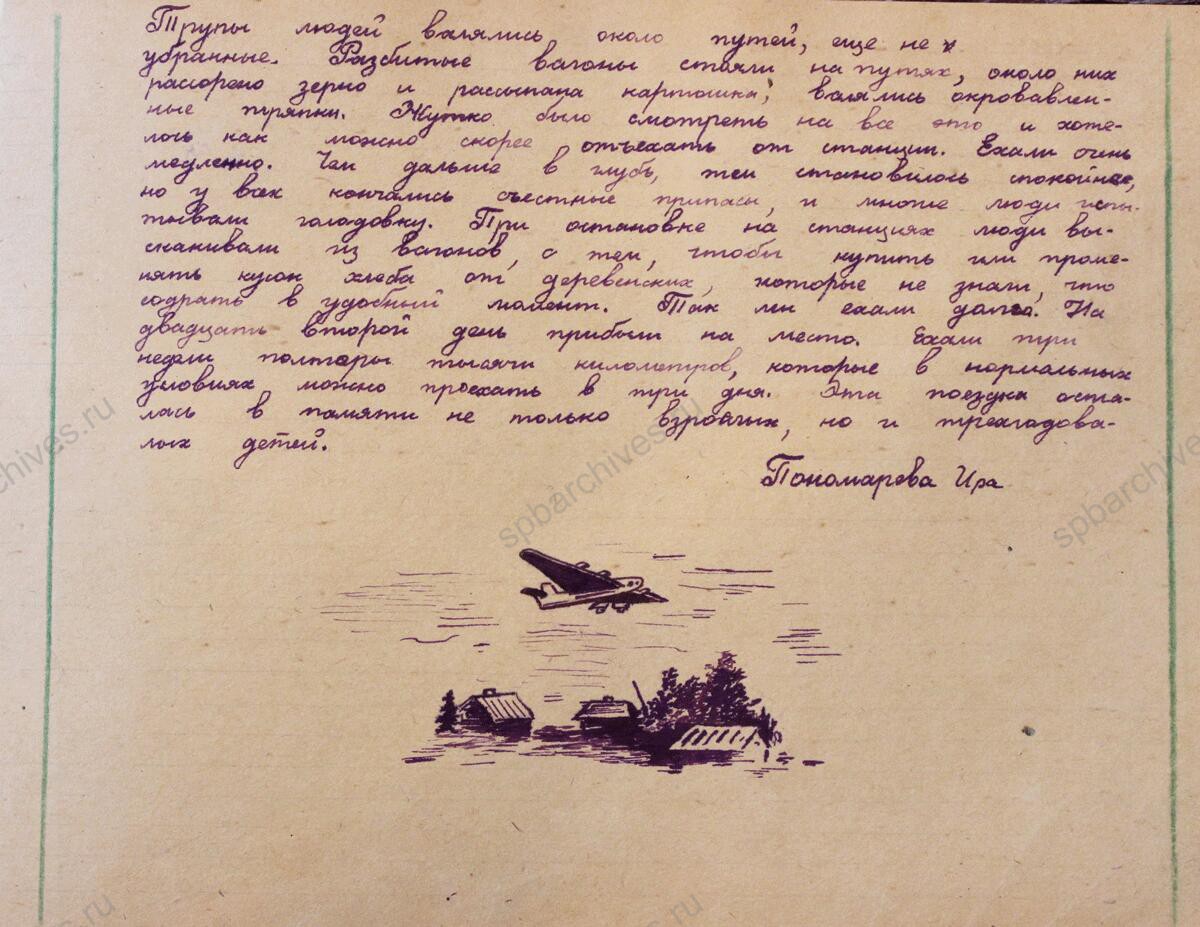 Трупы людей валялись около путей, еще не
убранные. Разбитые вагоны стояли на путях, около них
рассорено зерно и рассыпана картошка; валялись окровавлен-
ные тряпки. Жутко было смотреть на все это и хоте-
лось как можно скорее отъехать от станции. Ехали очень
медленно. Чем дальше в глубь, тем становилось спокойнее,
но у всех кончались съестные припасы, и многие люди испы-
тывали голодовку. При остановке на станциях люди вы-
скакивали из вагонов, с тем, чтобы купить или проме-
нять кусок хлеба от деревенских, которые не знали, что
содрать в удобный момент. Так мы ехали долго. На
двадцать второй день прибыли на место. Ехали три
недели полторы тысячи километров, которые в нормальных
условиях можно проехать в три дня. Эта поездка оста-
лась в памяти не только взрослых, но и трехгодова-
лых детей.
Пономарева Ира
spbarchives.ru
spbarchives.ru
spbarchives.ru